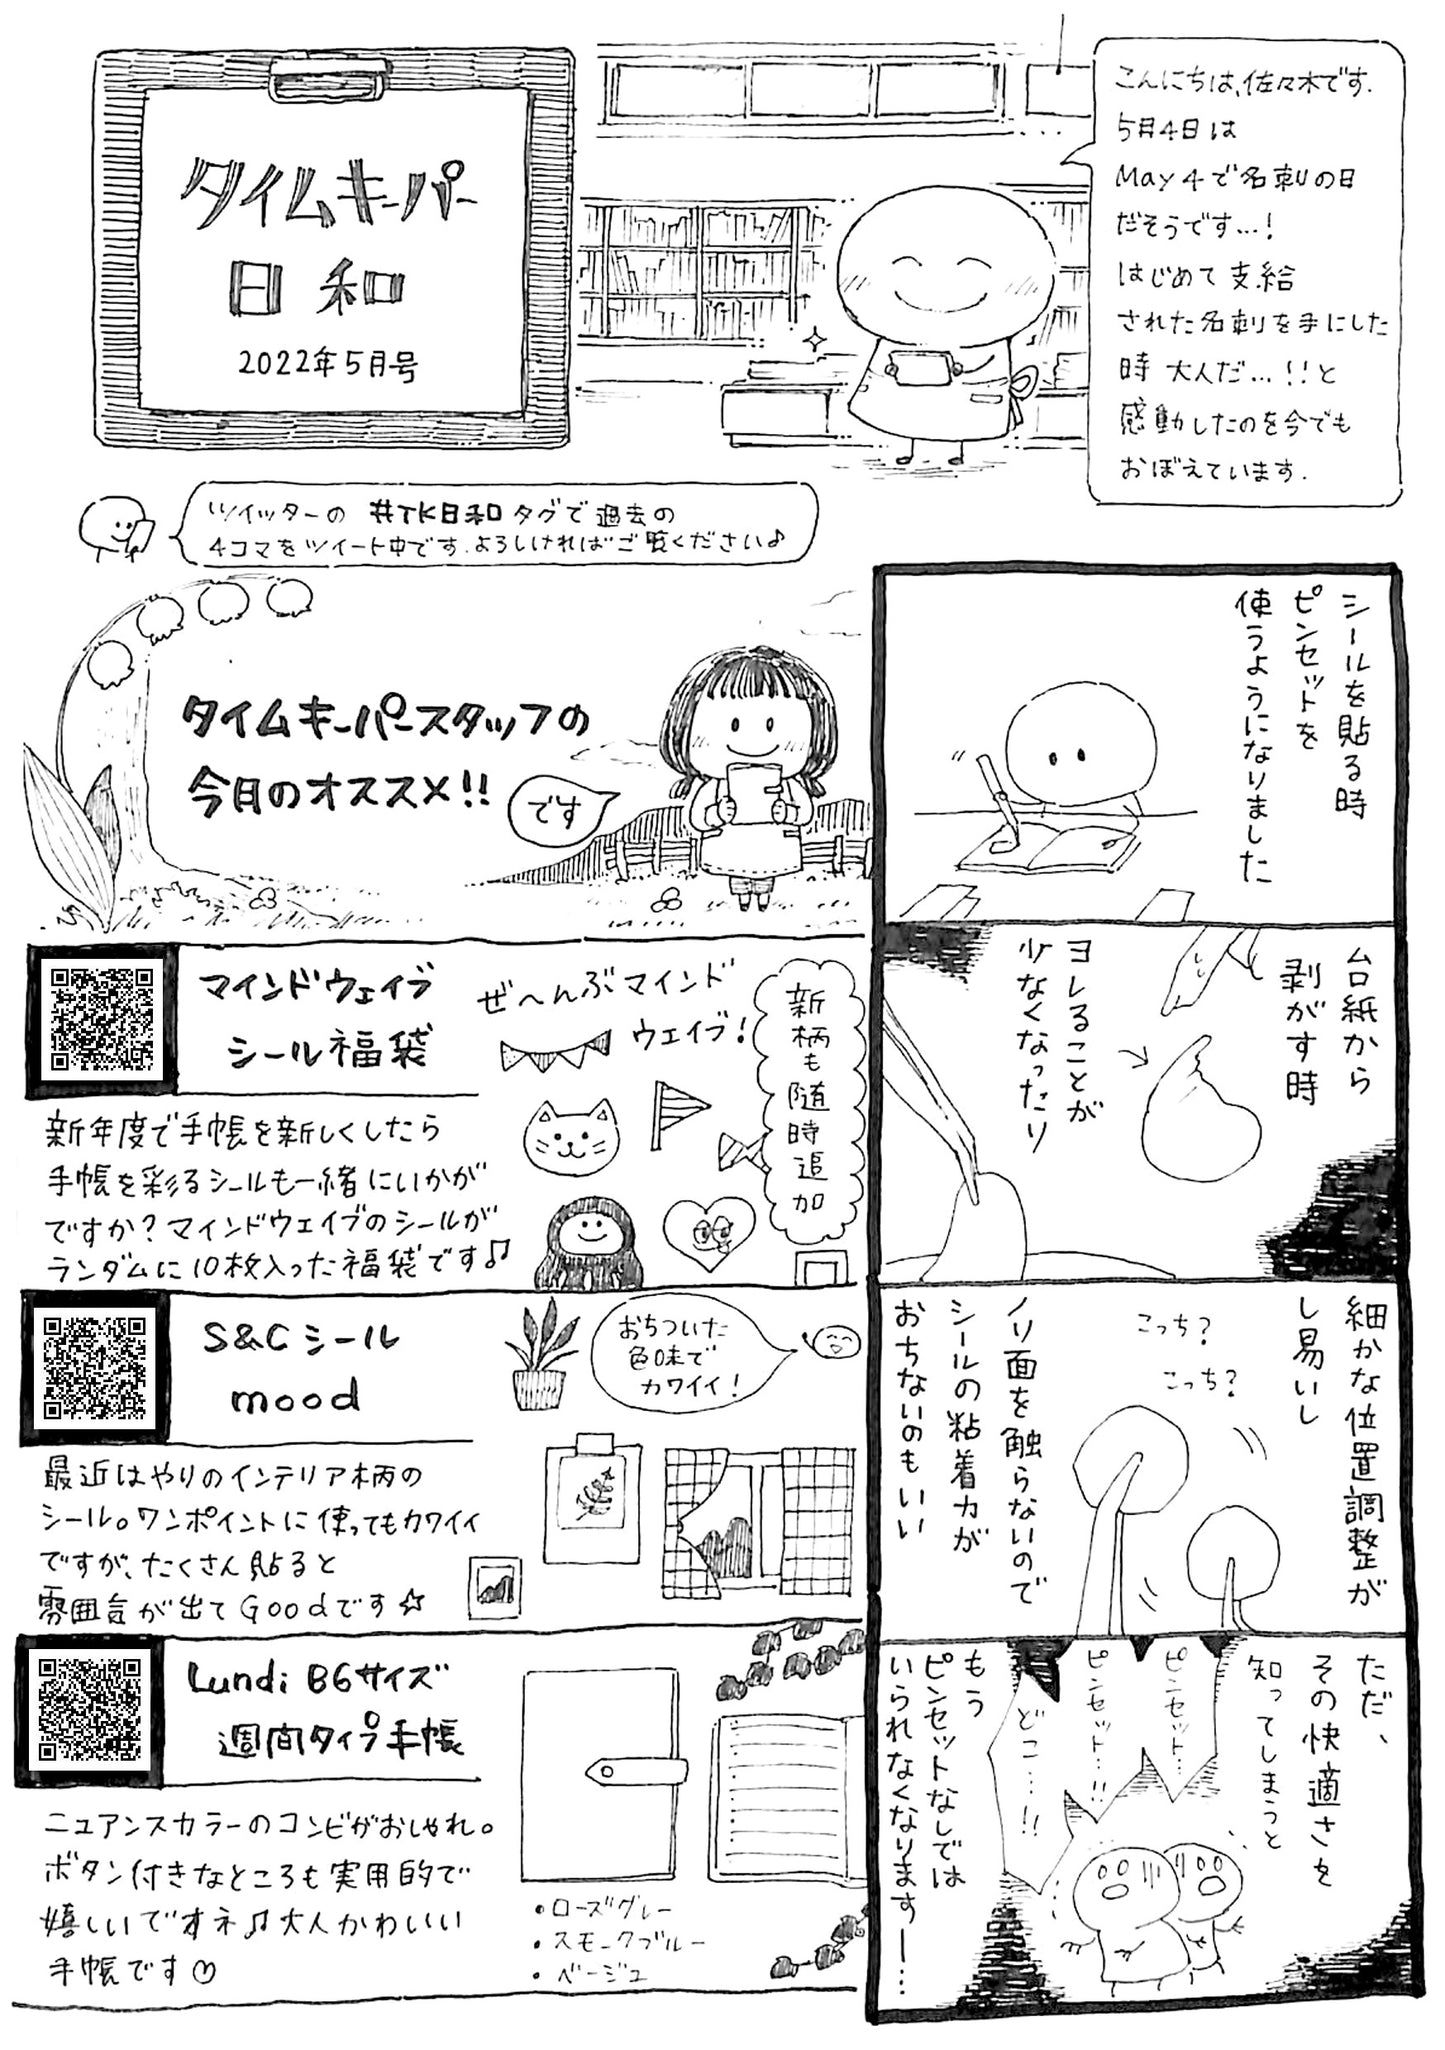 タイムキーパー
日和
2022年5月号
こんにちは、佐々木です.
5月4日は
May 4で名刺の日
だそうです…!
はじめて支給
された名刺を手にした
時 大人だ…!!と
感動したのを今でも
おぼえています.
ツイッターの #TK日和 タグで過去の
4コマをツイート中です.よろしければご覧ください♪
タイムキーパースタッフの
今月のオススメ!!
です
マインドウェイブ
シール福袋
ぜ〜んぶマインド
ウェイブ!
新柄も随時追加
新年度で手帳を新しくしたら
手帳を彩るシールも一緒にいかが
ですか?マインドウェイブのシールが
ランダムに10枚入った福袋です♫
S&Cシール
mood
おちついた
色味で
カワイイ!
最近はやりのインテリア柄の
シール。ワンポイントに使ってもカワイイ
ですが、たくさん貼ると
雰囲気が出てGoodです☆
Lundi B6サイズ
週間タイプ手帳
ニュアンスカラーのコンビがおしゃれ。
ボタン付きなところも実用的で
嬉しいですネ♫大人かわいい
手帳です♡
・ローズグレー
・スモークブルー
・ベージュ
シールを貼る時
ピンセットを
使うようになりました
台紙から
剥がす時
ヨレることが
少なくなったり
細かな位置調整が
し易いし
こっち?
こっち?
ノリ面を触らないので
シールの粘着力が
おちないのもいい
ただ、
その快適さを
知ってしまうと
ピンセット…
ピンセット…!!
どこ…!!
もう
ピンセットなしでは
いられなくなります一…